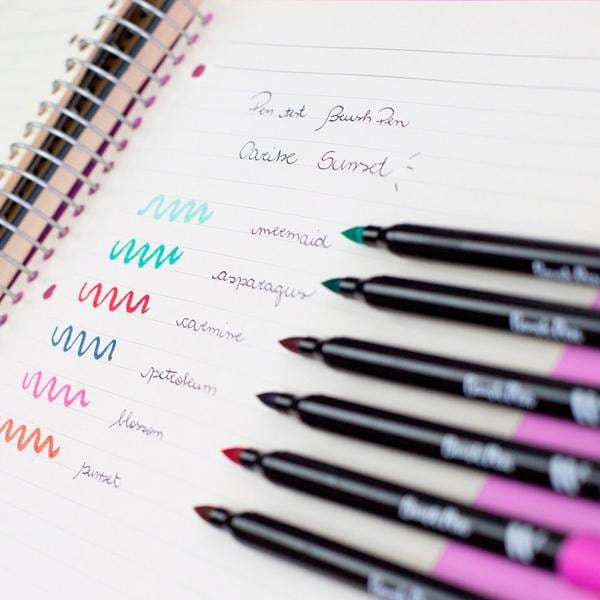 Pen test Brush Pen
Caribe Sunset
mermaid
asparagus
carmine
petroleum
blossom
sunset
Brush Pen
Brush Pen
Brush Pen
Brush Pen
Brush Pen
Brush Pen